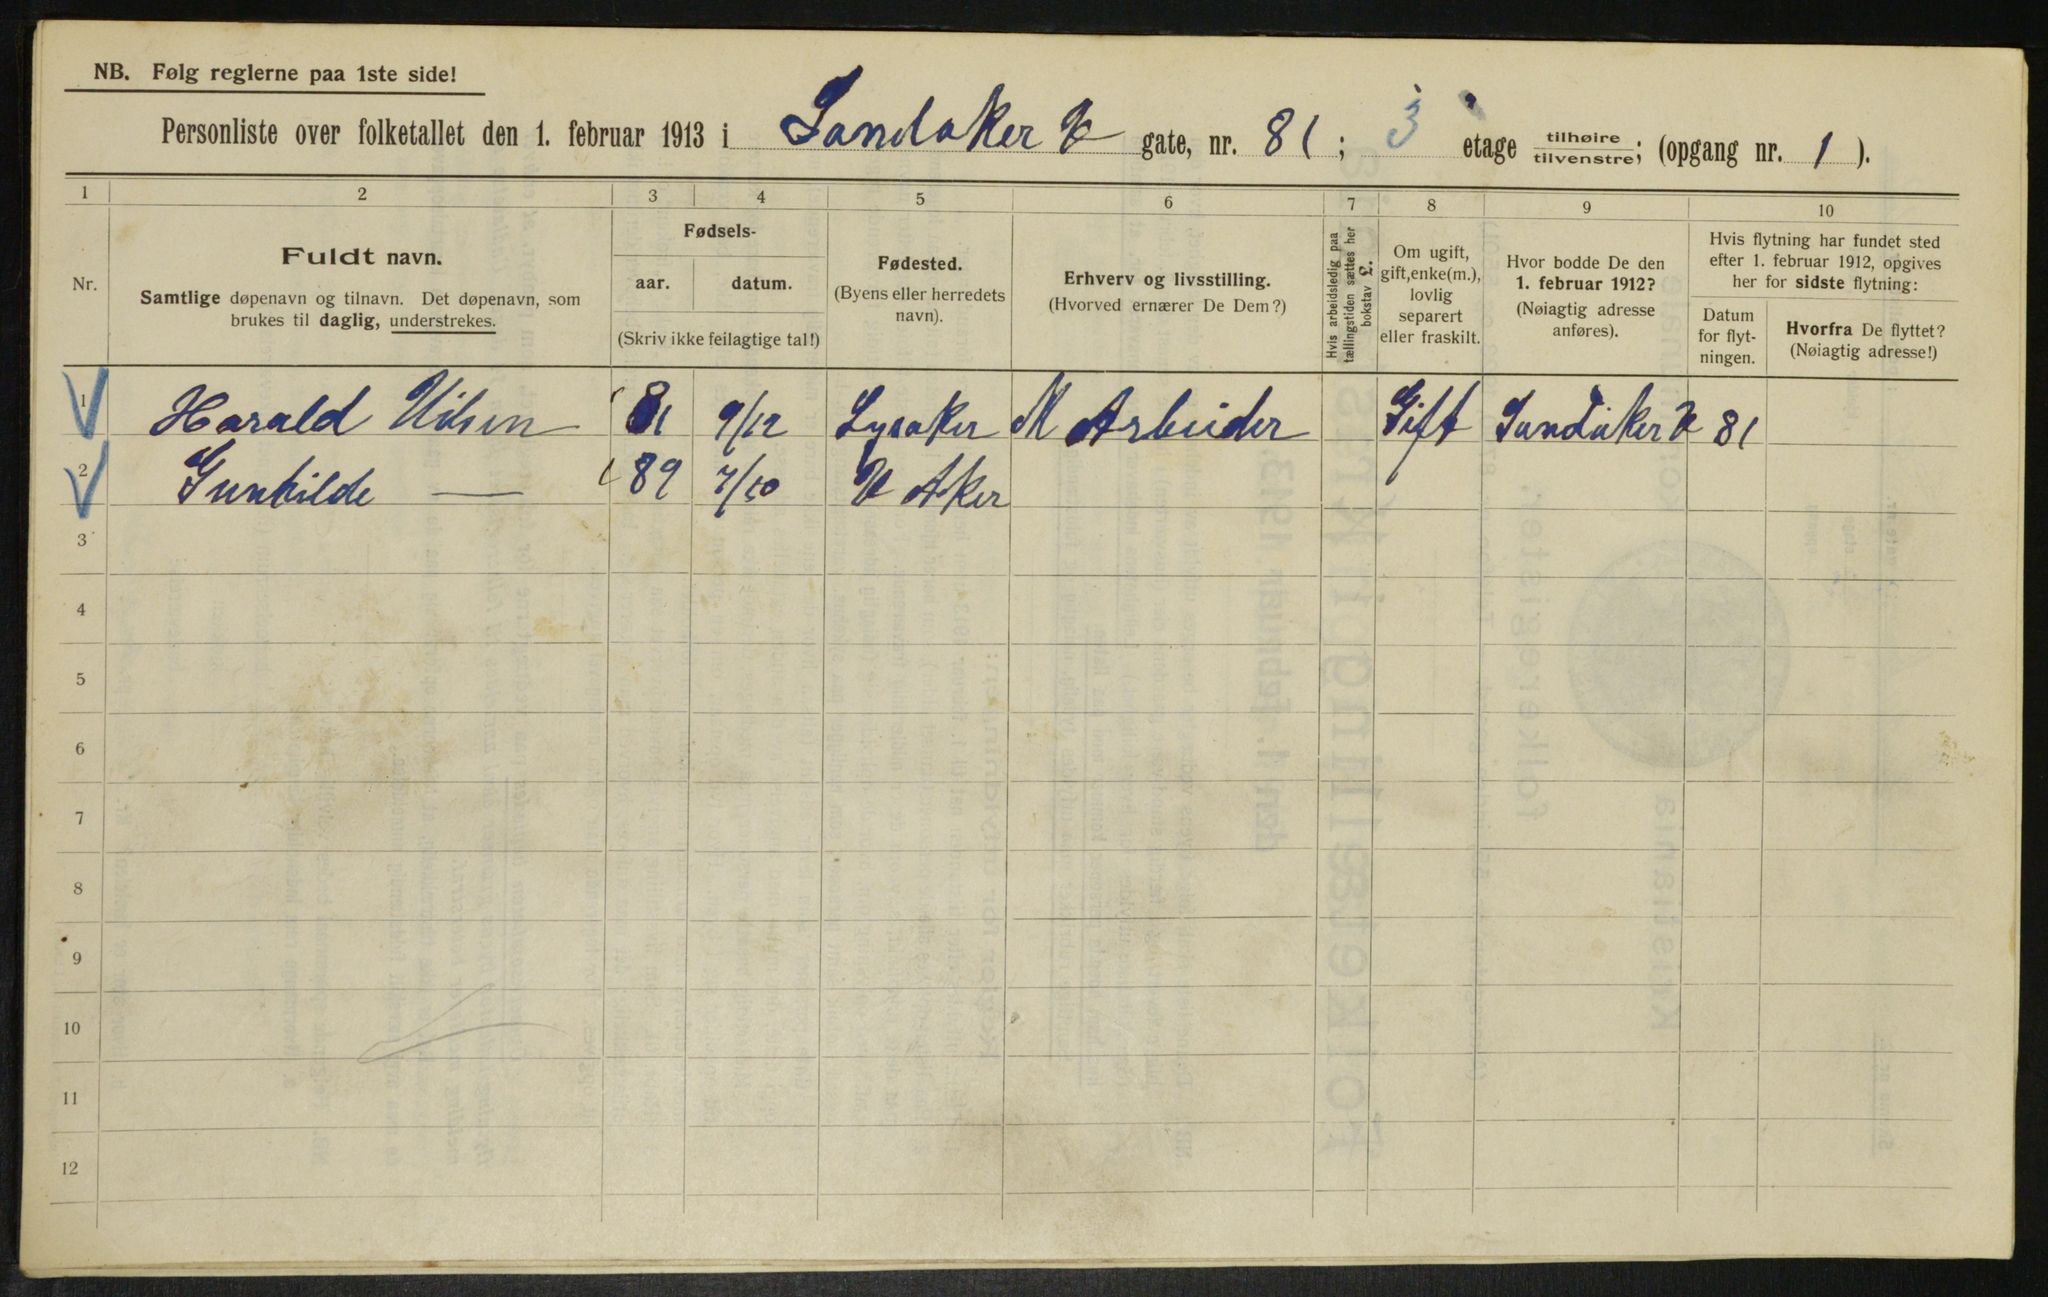 NB. Følg reglerne paa 1ste side!
Personliste over folketallet den 1. februar 1913 i Sandaker V gate, nr. 81; 3 etage tilhøire/tilvenstre; (opgang nr. 1).
1 2 3 4 5 6 7 8 9 10
Nr.
Fuldt navn.
Samtlige døpenavn og tilnavn. Det døpenavn, som
brukes til daglig, understrekes.
Fødsels-
aar. datum.
(Skriv ikke feilagtige tal!)
Fødested.
(Byens eller herredets
navn).
Erhverv og livsstilling.
(Hvorved ernærer De Dem?)
Hvis arbeidsledig paa
tællingstiden sættes her
bokstav L.
Om ugift,
gift, enke(m.),
lovlig
separert
eller fraskilt.
Hvor bodde De den
1. februar 1912?
(Nøiagtig adresse
anføres).
Hvis flytning har fundet sted
efter 1. februar 1912, opgives
her for sidste flytning:
Datum
for flyt-
ningen.
Hvorfra De flyttet?
(Nøiagtig adresse!)
1 Harald Nilsen 81 9/12 Lysaker M Arbeider Gift Sandaker V 81
2 Gunhilde — 89 7/10 V Aker
3
4
5
6
7
8
9
10
11
12